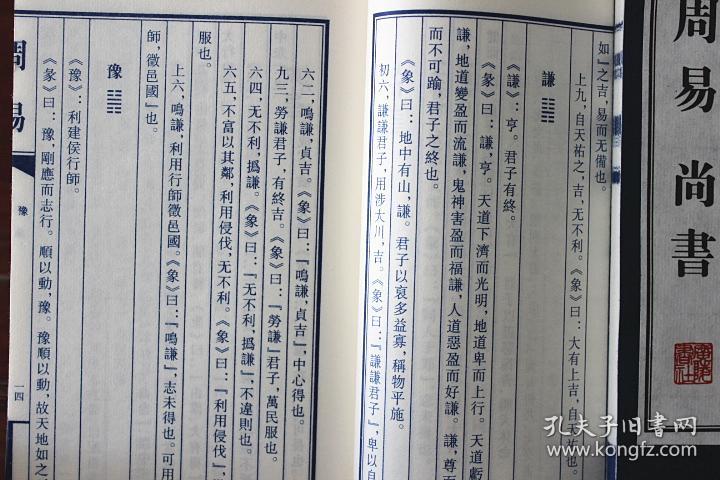 如』之吉，易而无備也。
上九，自天祐之，吉，无不利。《象》曰：大有上吉，自天祐也。
謙
《謙》：亨。君子有終。
《彖》曰：謙，亨。天道下濟而光明，地道卑而上行。天道虧
謙，地道變盈而流謙，鬼神害盈而福謙，人道惡盈而好謙。謙，尊而
而不可踰，君子之終也。
《象》曰：地中有山，謙。君子以裒多益寡，稱物平施。
初六，謙謙君子，用涉大川，吉。《象》曰：『謙謙君子』，卑以自
六二，鳴謙，貞吉。《象》曰：『鳴謙，貞吉』，中心得也。
九三，勞謙君子，有終吉。《象》曰：『勞謙』君子，萬民服也。
六四，无不利，撝謙。《象》曰：『无不利，撝謙』，不違則也。
六五，不富以其鄰，利用侵伐，无不利。《象》曰：『利用侵伐』，
服也。
上六，鳴謙，利用行師徵邑國。《象》曰：『鳴謙』，志未得也。可用
師，徵邑國』也。
豫
《豫》：利建侯行師。
《彖》曰：豫，剛應而志行。順以動，豫。豫順以動，故天地如之
周易
豫
一四
周易 尚書
孔夫子旧书网
www.kongfz.com